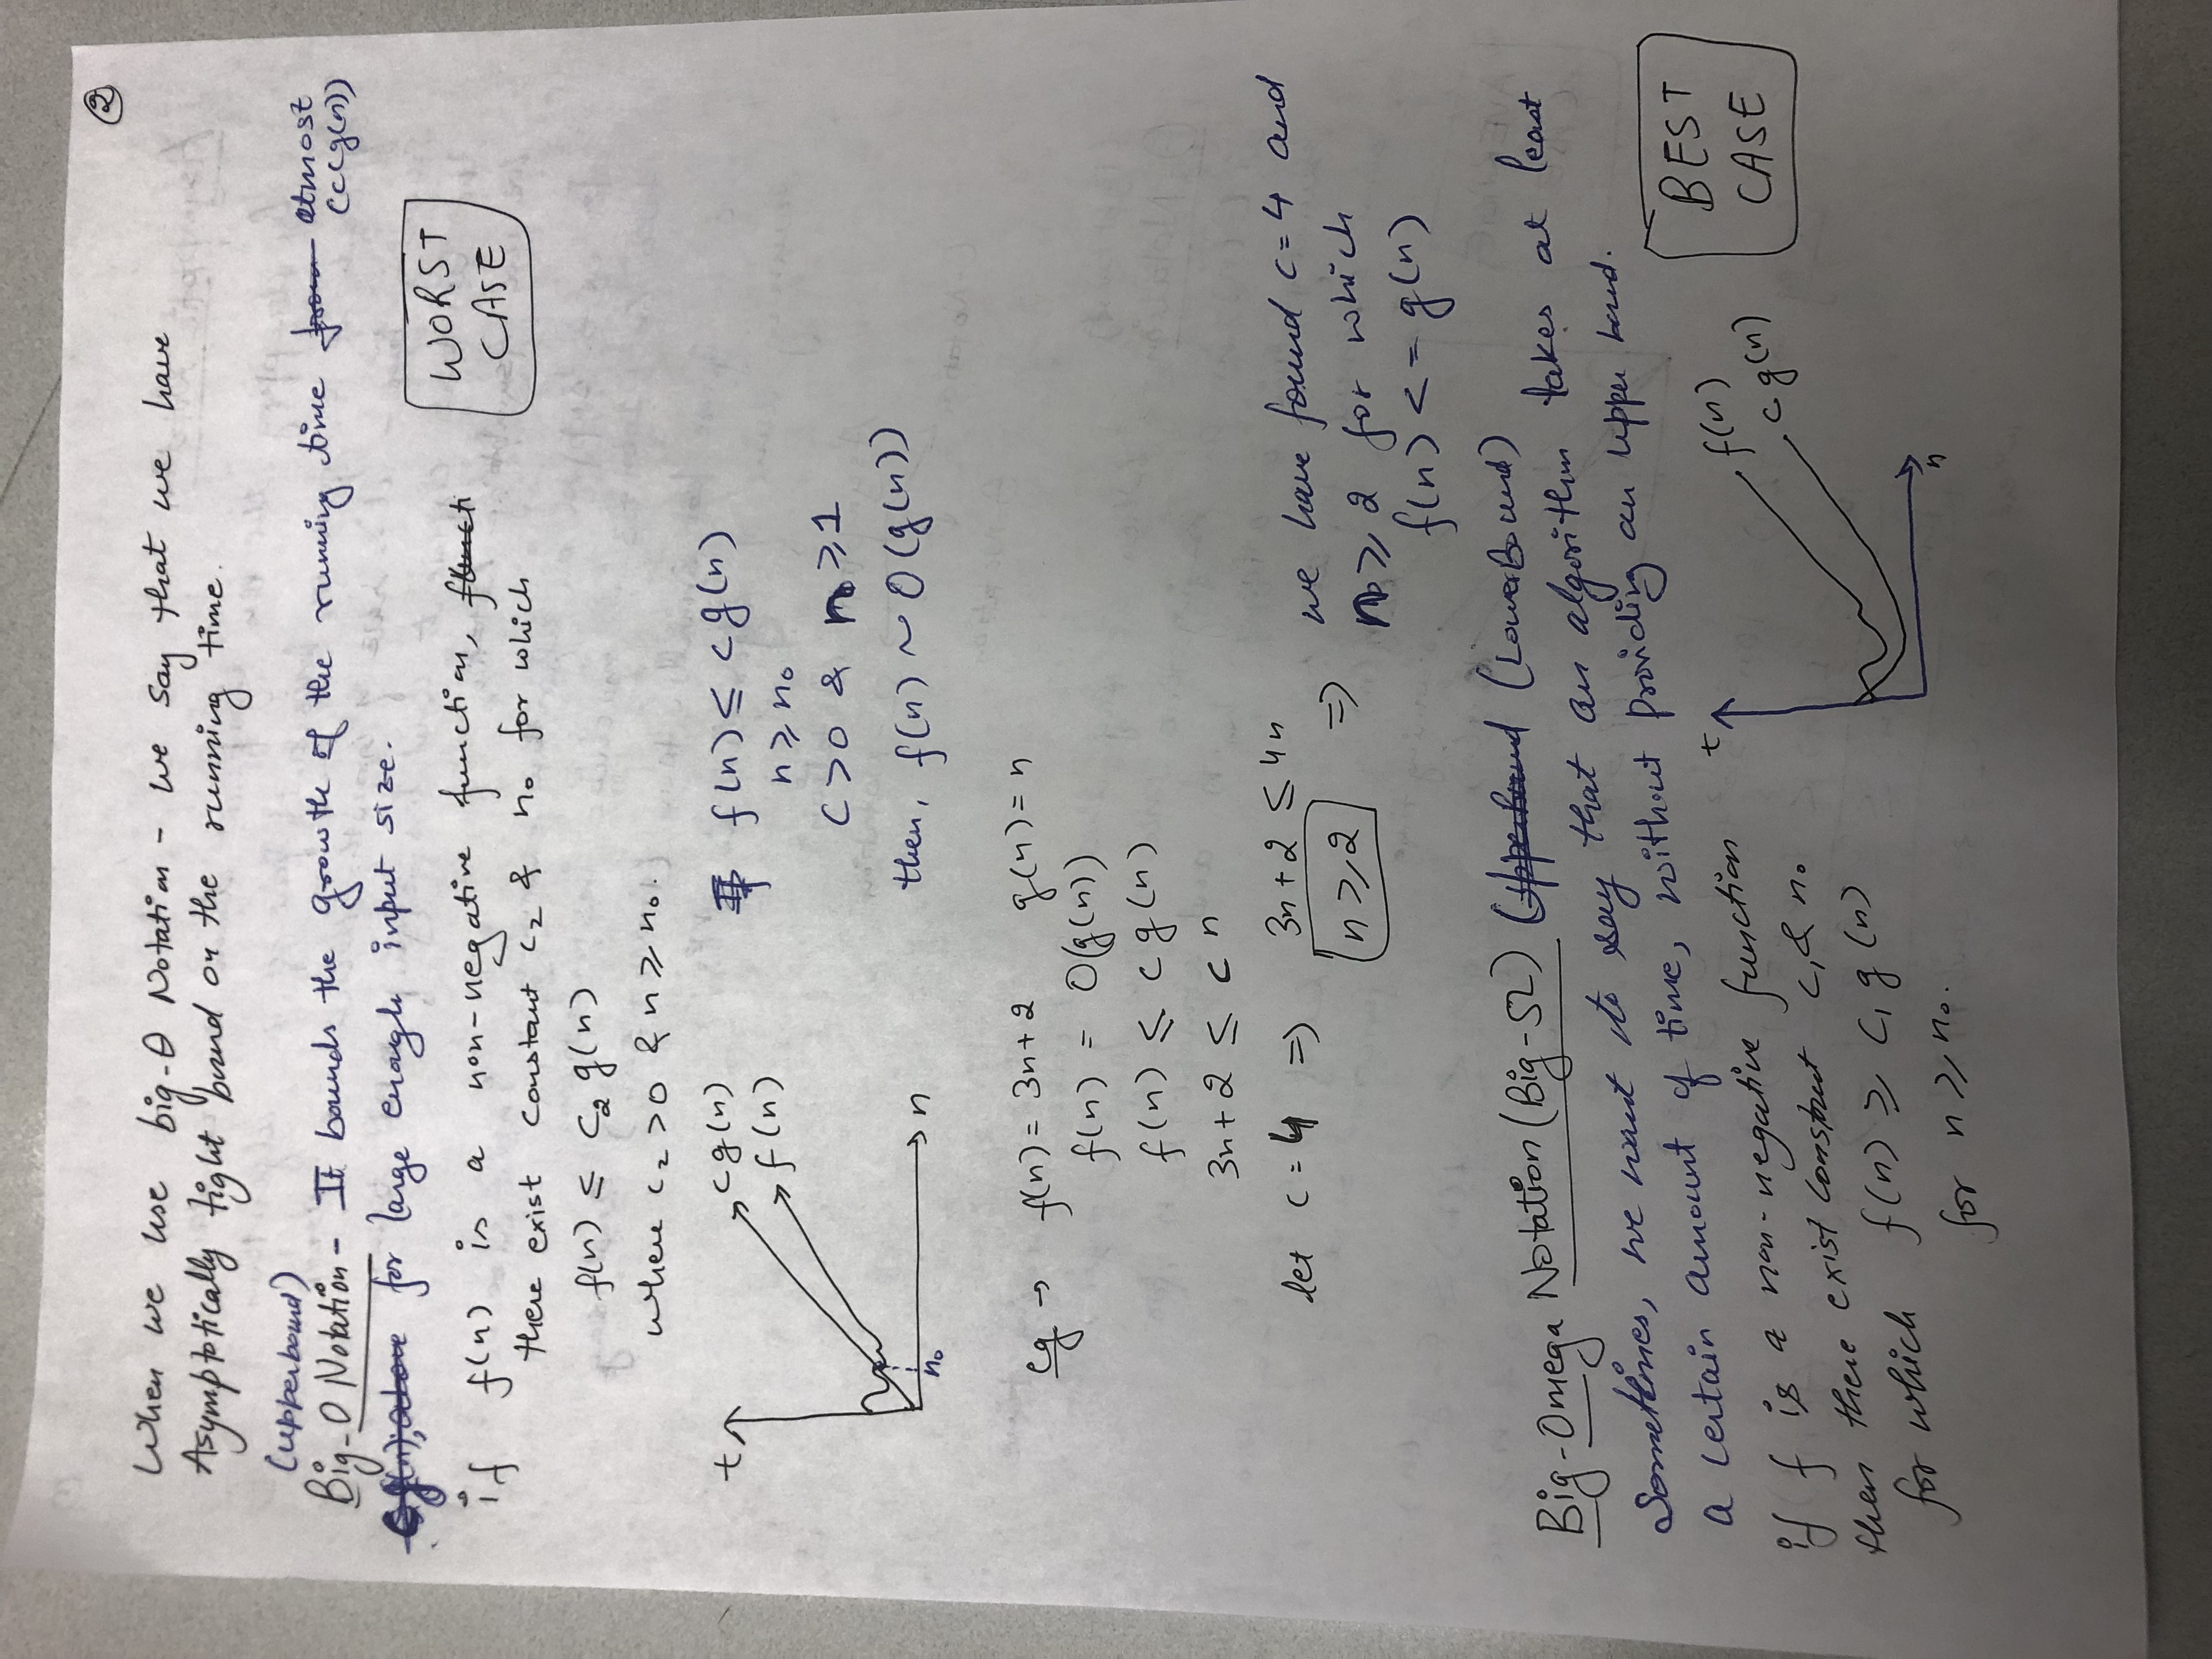 2
When we use big-θ Notation - we say that we have
Asymptotically tight bound on the running time.
(upperbound)
Big-O Notation - It bounds the growth of the running time from atmost
(c(g(n))
cg(n); above for large enough input size.
WORST
CASE
if f(n) is a non-negative function, functi
there exist constant c₂ & n₀ for which
f(n) ≤ c₂ g(n)
where c₂ > 0 & n ≥ n₀.
t
cg(n)
f(n)
n₀
n
f(n) ≤ cg(n)
n ≥ n₀
c > 0 & n₀ ≥ 1
then, f(n) ~ O(g(n))
eg → f(n) = 3n+2 g(n) = n
f(n) = O(g(n))
f(n) ≤ cg(n)
3n+2 ≤ cn
let c = 4 ⇒ 3n+2 ≤ 4n
n ≥ 2 ⇒
we have found c = 4 and
n₀ ≥ 2 for which
f(n) <= g(n)
Big-Omega Notation (Big-Ω) (upperbound (LowerBound)
Sometimes, we want to say that an algorithm takes at least
a certain amount of time, without providing an upper bound.
BEST
CASE
if f is a non-negative function
then there exist constant c₁ & n₀
for which f(n) ≥ c₁ g(n)
for n ≥ n₀.
t
f(n)
cg(n)
n